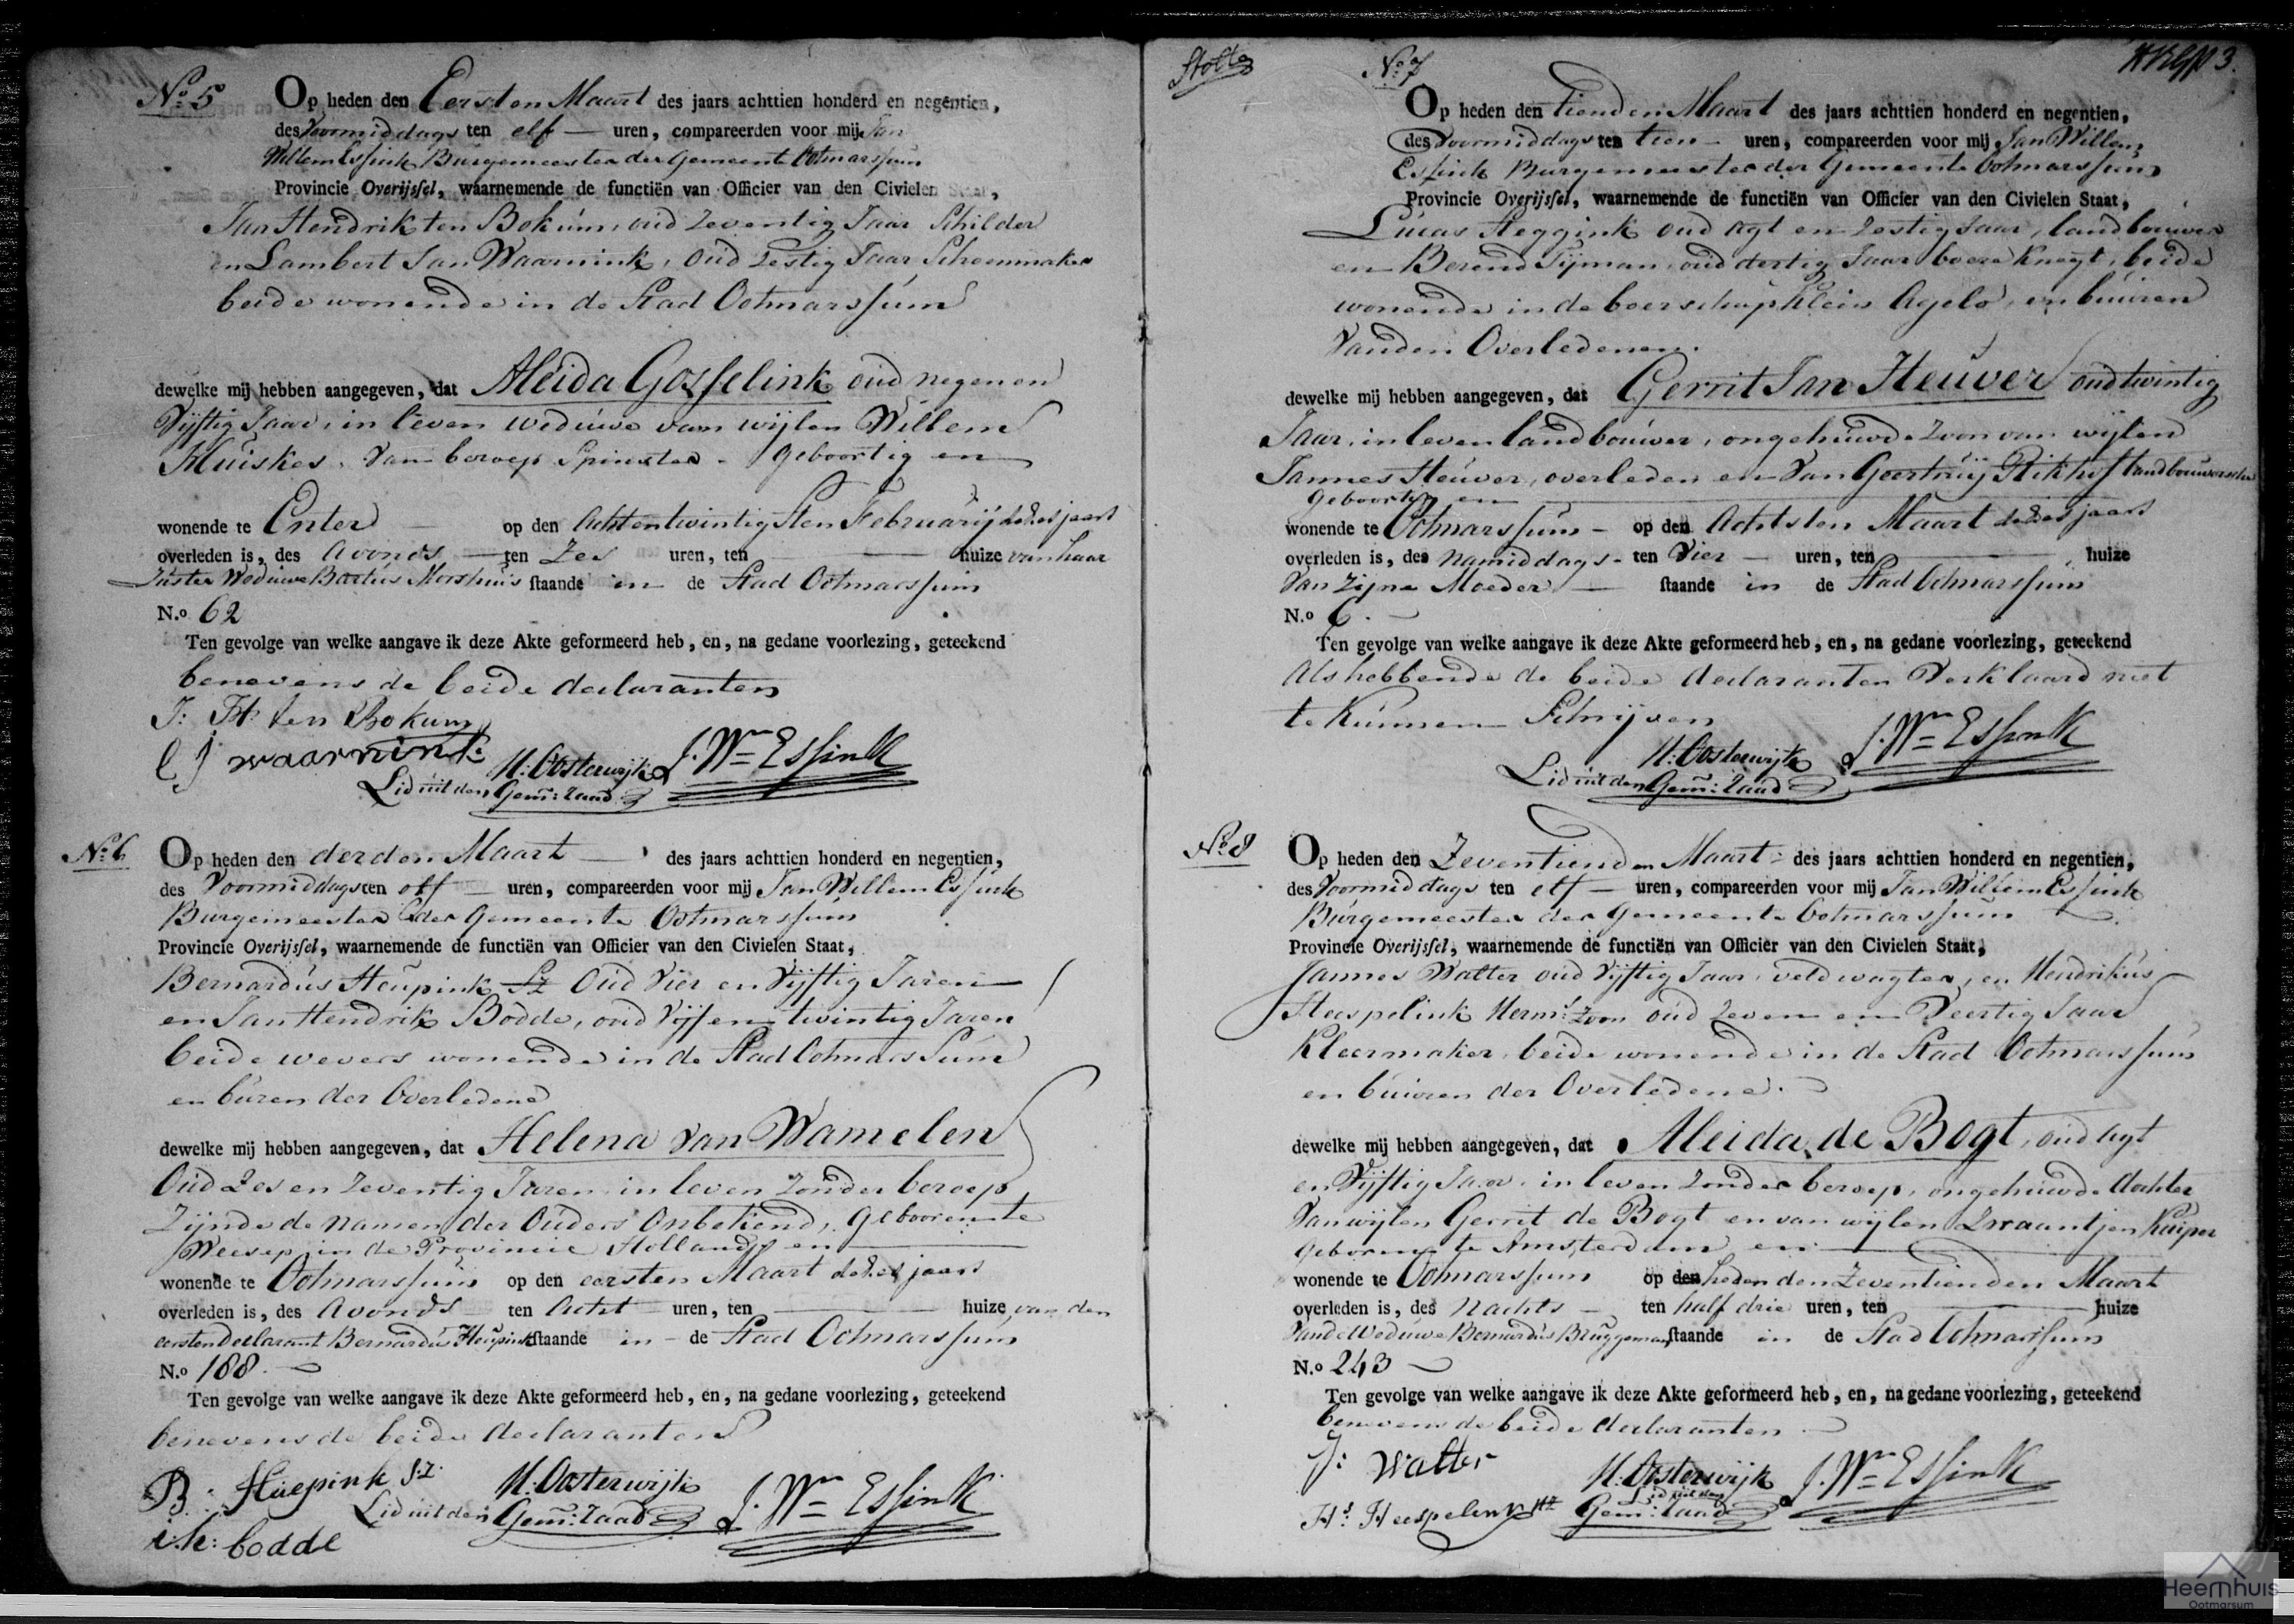 No. 5
Op heden den Eersten Maart des jaars achttien honderd en negentien,
des Voormiddags ten elf — uren, compareerden voor mij Jan
Willem Essink Burgemeester der Gemeente Ootmarssum
Provincie Overijssel, waarnemende de functiën van Officier van den Civielen Staat,
Jan Hendrik ten Bokum, oud Zeventig Jaar Schilder
en Lambert Jan Waarnink, Oud Zestig Jaar Schoenmaker
beide wonende in de Stad Ootmarssum
dewelke mij hebben aangegeven, dat Aleida Gosselink oud negen en
Vijftig Jaar, in leven weduwe van wijlen Willem
Kuiskes, van beroep Spinster - Geboortig en
wonende te Enter — op den Achtentwintigsten Februarij dezes jaars
overleden is, des Avonds — ten Zes uren, ten — huize van haar
Zuster Weduwe Bartus Morshuis staande in de Stad Ootmarssum
N.o 62
Ten gevolge van welke aangave ik deze Akte geformeerd heb, en, na gedane voorlezing, geteekend
benevens de beide declaranten
J: H: ten Bokum
l J waarnink
H: Oosterwijk J. Wm Essink
Lid uit den Gem: raad
No. 6
Op heden den derden Maart — des jaars achttien honderd en negentien,
des Voormiddags ten elf — uren, compareerden voor mij Jan Willem Essink
Burgemeester der Gemeente Ootmarssum
Provincie Overijssel, waarnemende de functiën van Officier van den Civielen Staat,
Bernardus Heupink Sz Oud Vier en Vijftig Jaren
en Jan Hendrik Bodde, oud Vijf en twintig Jaren
beide wevers wonende in de Stad Ootmarssum
en buren der Overledene
dewelke mij hebben aangegeven, dat Helena van Wamelen
Oud Zes en Zeventig Jaren in leven Zonder beroep
Zijnde de namen der Ouders Onbekend, Geboren te
Weesep in de Provincie Holland en —
wonende te Ootmarssum op den eersten Maart dezes jaars
overleden is, des Avonds ten Acht uren, ten — huize van den
eersten declarant Bernardus Heupink staande in de Stad Ootmarssum
N.o 188
Ten gevolge van welke aangave ik deze Akte geformeerd heb, en, na gedane voorlezing, geteekend
benevens de beide declaranten
B: Hüepink S:Z.
H: Oosterwijk J. Wm Essink
Lid uit den Gem: raad
i:h: bodde
Stolte
3.
No. 7
Op heden den tienden Maart des jaars achttien honderd en negentien,
des Voormiddags ten tien - uren, compareerden voor mij Jan Willem
Essink Burgemeester der Gemeente Ootmarssum
Provincie Overijssel, waarnemende de functiën van Officier van den Civielen Staat,
Lucas Heggink oud agt en Zestig Jaar, landbouwer
en Berend Tijman, oud dertig Jaar boere knegt, beide
wonende in de boerschap Klein Agelo, en buuren
van den Overledenen.
dewelke mij hebben aangegeven, dat Gerrit Jan Heuver oud twintig
Jaar, in leven landbouwer, ongehuwde Zoon van wijlen
Jannes Heuver, overleden en Van Geertruij Rikhof landbouwersche
Geboortig en —
wonende te Ootmarssum - op den Achtsten Maart dezes jaars
overleden is, des Namiddags - ten Vier — uren, ten — huize
Van Zijne Moeder — staande in de Stad Ootmarssum
N.o 6
Ten gevolge van welke aangave ik deze Akte geformeerd heb, en, na gedane voorlezing, geteekend
Als hebbende de beide declaranten Verklaard niet
te Kunnen Schrijven
H: Oosterwijk J. Wm Essink
Lid uit den Gem: raad
No. 8
Op heden den Zeventienden Maart - des jaars achttien honderd en negentien,
des Voormiddags ten elf — uren, compareerden voor mij Jan Willem Essink
Burgemeester der Gemeente Ootmarssum
Provincie Overijssel, waarnemende de functiën van Officier van den Civielen Staat,
Jannes Walter oud Vijftig Jaar, veldwagter, en Hendrikus
Heespelink Herms: Zoon oud Zeven en Veertig Jaar
Kleermaker, beide wonende in de Stad Ootmarssum
en buuren der Overledene.
dewelke mij hebben aangegeven, dat Aleida de Bogt, oud agt
en Vijftig Jaar, in leven Zonder beroep, ongehuwde dochter
Van wijlen Gerrit de Bogt en van wijlen Zwaantjen Kuiper
Geboren te Amsterdam en —
wonende te Ootmarssum op den heden den Zeventienden Maart
overleden is, des Nachts — ten half drie uren, ten — huize
Van de Weduwe Bernardus Bruggeman staande in de Stad Ootmarssum
N.o 243
Ten gevolge van welke aangave ik deze Akte geformeerd heb, en, na gedane voorlezing, geteekend
benevens de beide declaranten
J: Walter
H: Oosterwijk J. Wm Essink
Lid uit den
Hs: Heespelink Hz Gem: raad
Heemhuis
Ootmarsum